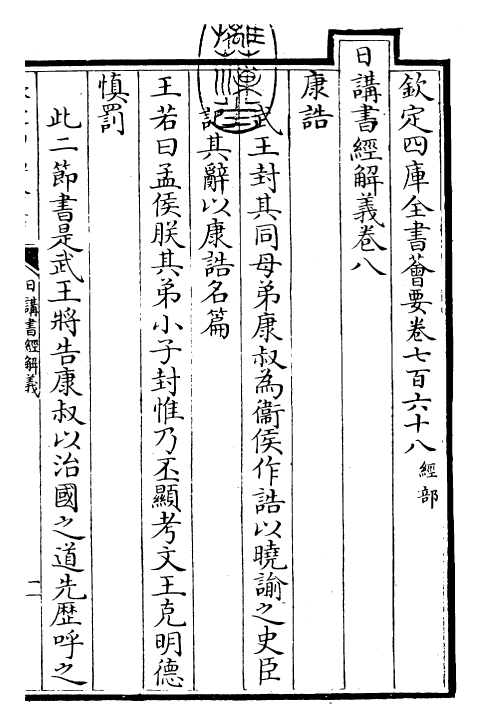 欽定四庫全書薈要卷七百六十八 經部
日講書經解義卷八
康誥
武王封其同母弟康叔為衞侯作誥以曉諭之史臣
記其辭以康誥名篇
王若曰孟侯朕其弟小子封惟乃丕顯考文王克明德
慎罰
此二節書是武王將告康叔以治國之道先歷呼之
日講書經解義
一